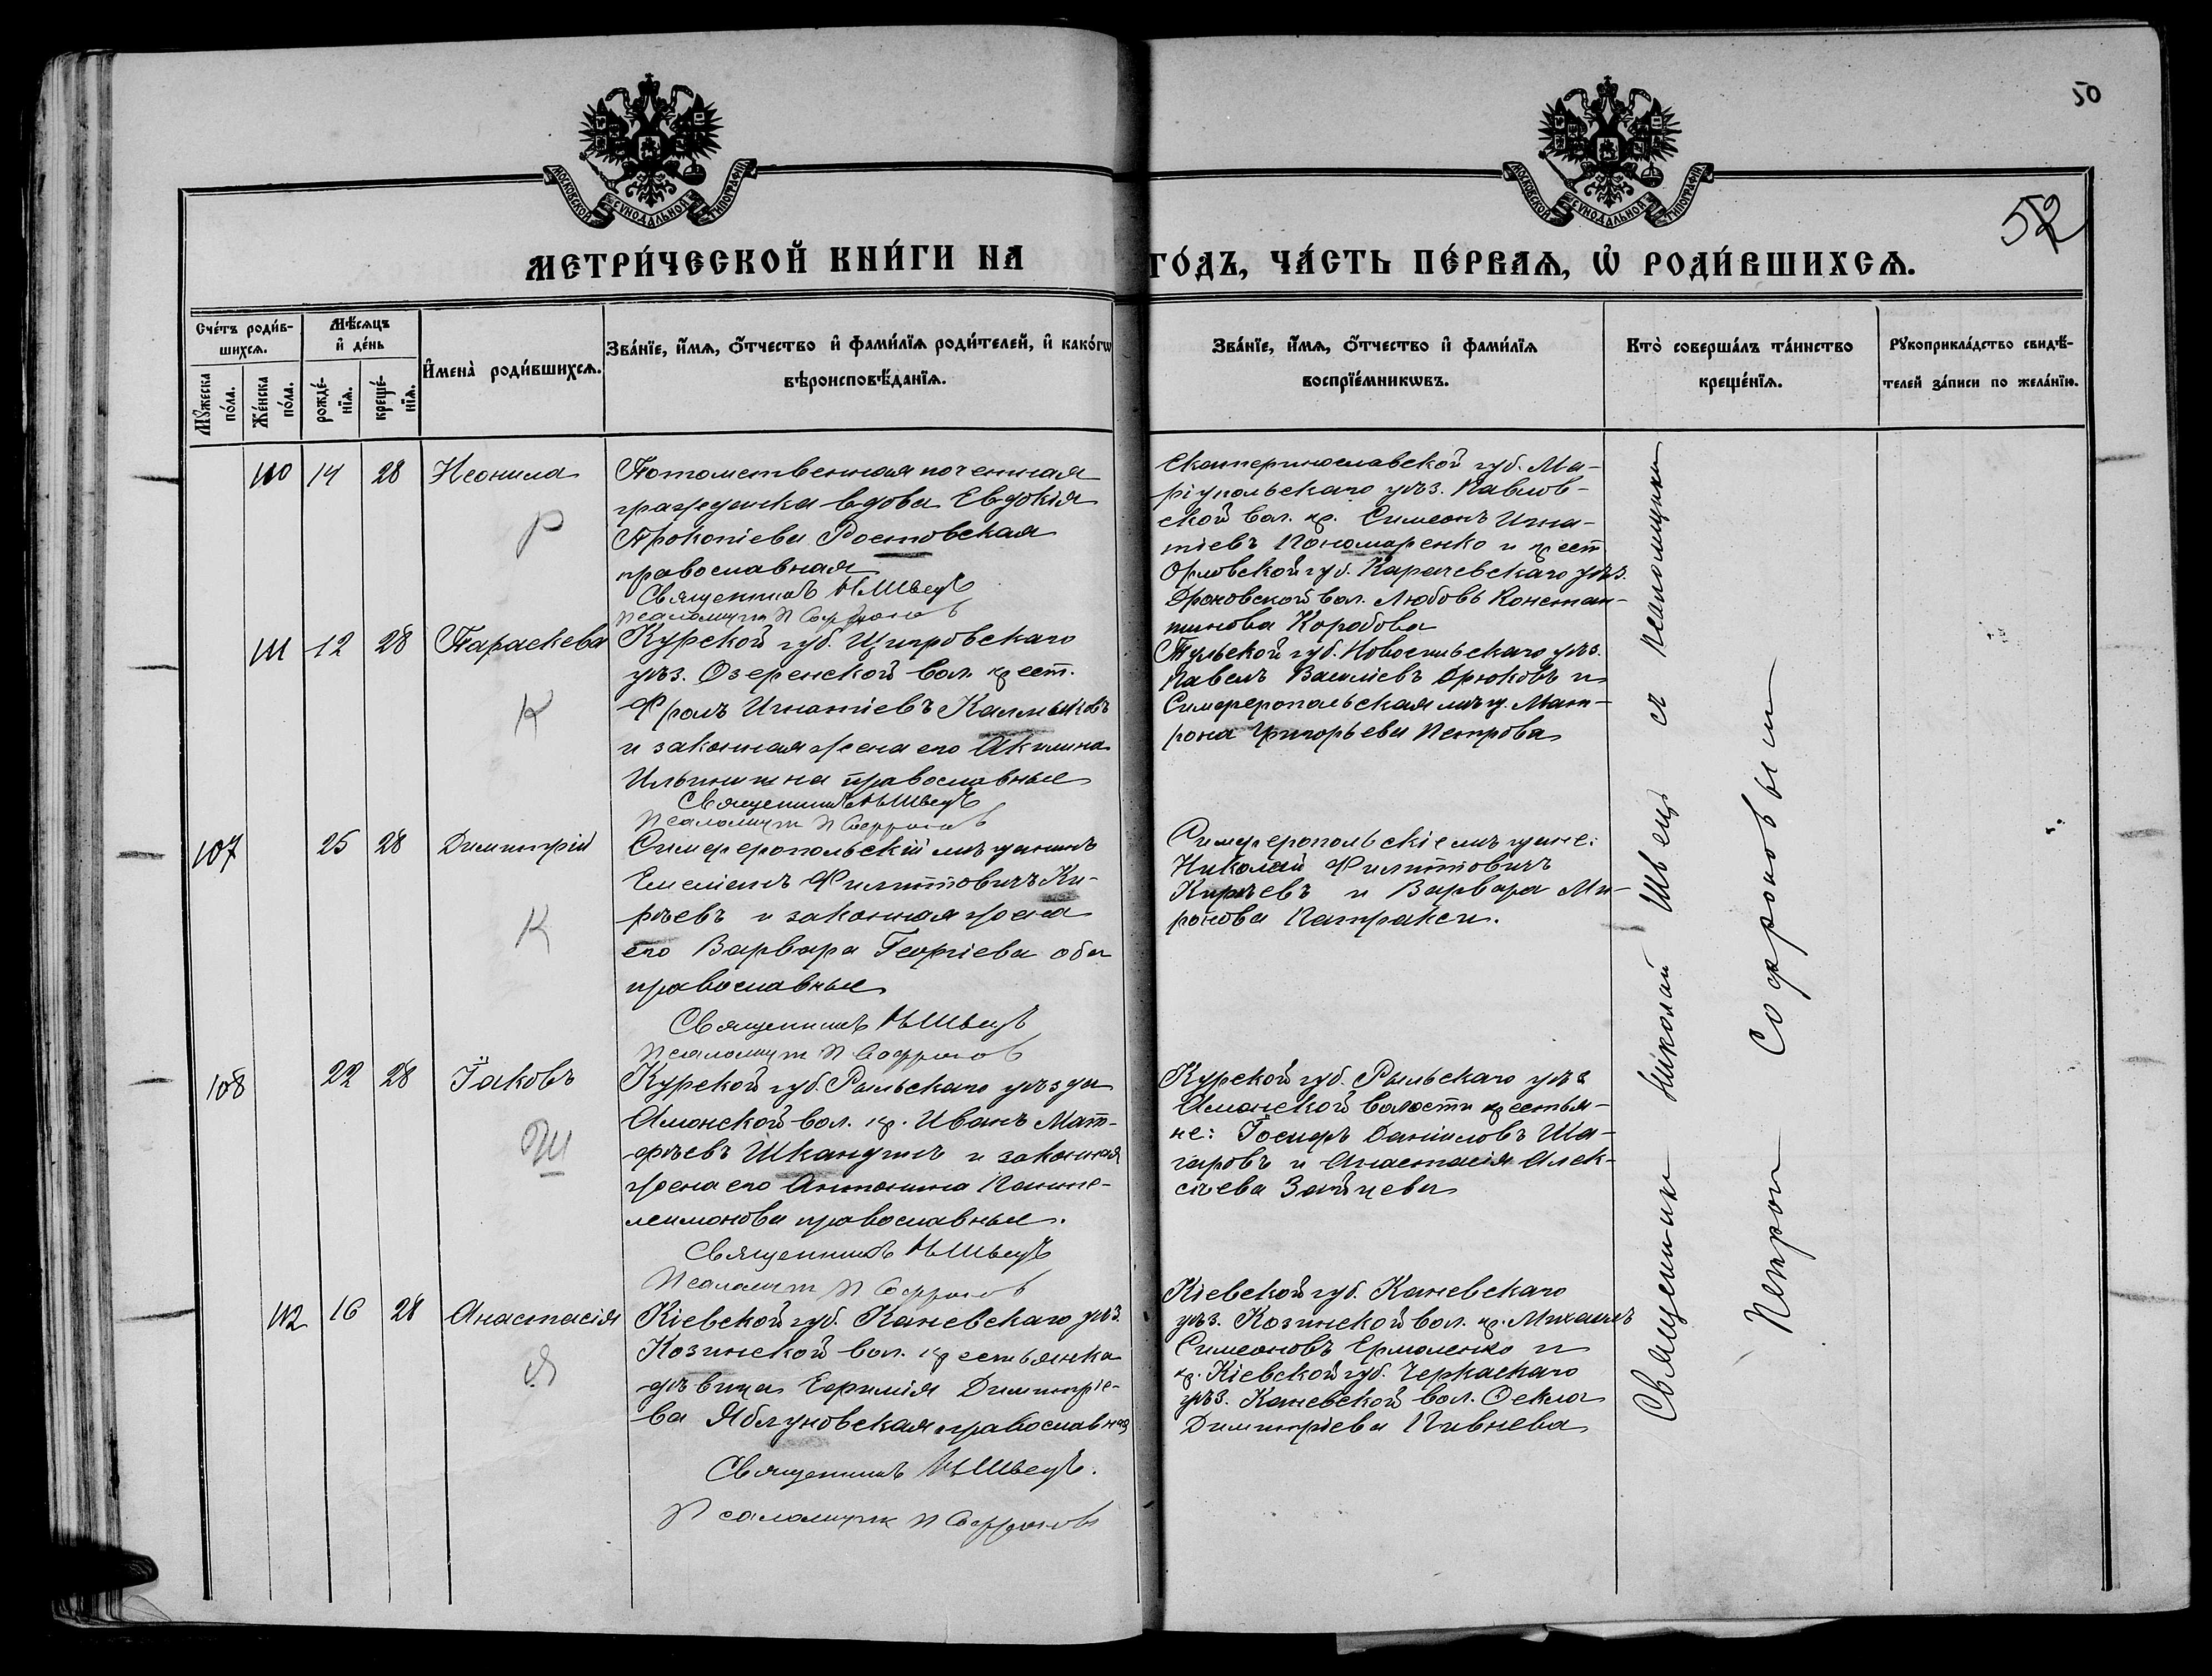 50
52
МОСКОВСКОЙ СѴНОДАЛЬНОЙ ТИПОГРАФІИ
МОСКОВСКОЙ СѴНОДАЛЬНОЙ ТИПОГРАФІИ
МЕТРИ́ЧЕСКОЙ КНИ́ГИ НА ГО́ДЪ, ЧА́СТЬ ПЕ́РВАѦ, Ѡ҆ РОДИ́ВШИХСѦ.
Сче́тъ роди́в-
шихсѧ.
Мѣ́сѧцъ
и҆ де́нь
Мꙋ́жеска
по́ла.
Же́нска
по́ла.
рожде́-
нїѧ.
креще́-
нїѧ.
И҆мена̀ роди́вшихсѧ.
Зва́нїе, и҆́мѧ, ѻ҆́тчество и҆ фами́лїѧ роди́телей, и҆ како́гѡ
вѣроисповѣ́данїѧ.
Зва́нїе, и҆́мѧ, ѻ҆́тчество и҆ фами́лїѧ
воспрїе́мникѡвъ.
Кто̀ соверша́лъ та́инство
креще́нїѧ.
Рꙋкоприкла́дство свидѣ́-
телей за́писи по жела́нїю.
110 14 28 Неонила
Р
Потомственная почетная
гражданка вдова Евдокія
Прокопіева Ростовская
православная
Священникъ Н. Швецъ
Псаломщик П Софронов
Екатеринославской губ. Ма-
ріупольскаго уѣз. Павлов-
ской вол. кр. Симеонъ Игна-
тіевъ Пономаренко и крест
Орловской губ. Карачевскаго уѣз.
Дроновской вол. Любовь Констан-
тинова Коробова
111 12 28 Параскева
К
Курской губ. Щигровскаго
уѣз. Озеренской вол. крест.
Фролъ Игнатіевъ Калмыковъ
и законная жена его Акилина
Ильинична православные
Священникъ Н. Швецъ
Псаломщик П Софронов
Тульской губ. Новосильскаго уѣз.
Павелъ Василіевъ Дрюковъ и
Симферопольская мѣщ. Мат-
рона Григорьева Петрова
107 25 28 Димитрій
К
Симферопольскій мѣщанинъ
Емеліанъ Филипповичъ Ки-
рѣевъ и законная жена
его Варвара Георгіева оба
православные
Священникъ Н. Швецъ
Псаломщик П Софронов
Симферопольскіе мѣщане:
Николай Филипповичъ
Кирѣевъ и Варвара Ми-
ронова Патракси.
108 22 28 Іаковъ
Ш
Курской губ. Рыльскаго уѣзда
Амонской вол. кр. Иванъ Мат-
фѣевъ Шкандинъ и законная
жена его Антонина Панте-
леимонова православные.
Священникъ Н. Швецъ
Псаломщик П Софронов
Курской губ. Рыльскаго уѣз
Амонской волости крестья-
не: Іосифъ Даниловъ Ша-
гаровъ и Анастасія Алек-
сѣева Зайцева
112 16 28 Анастасія
Я
Кіевской губ. Каневскаго уѣз.
Козинской вол. крестьянка
дѣвица Ефимія Димитріе-
ва Яблуновская православная
Священникъ Н. Швецъ.
Псаломщик П Софронов
Кіевской губ. Каневскаго
уѣз. Козинской вол. кр. Михаилъ
Симеоновъ Ермоленко и
кр. Кіевской губ. Черкаскаго
уѣз. Каневской вол. Ѳекла
Димитріева Пивнева
Священник Николай Швец съ псаломщиком
Петром Софроновым